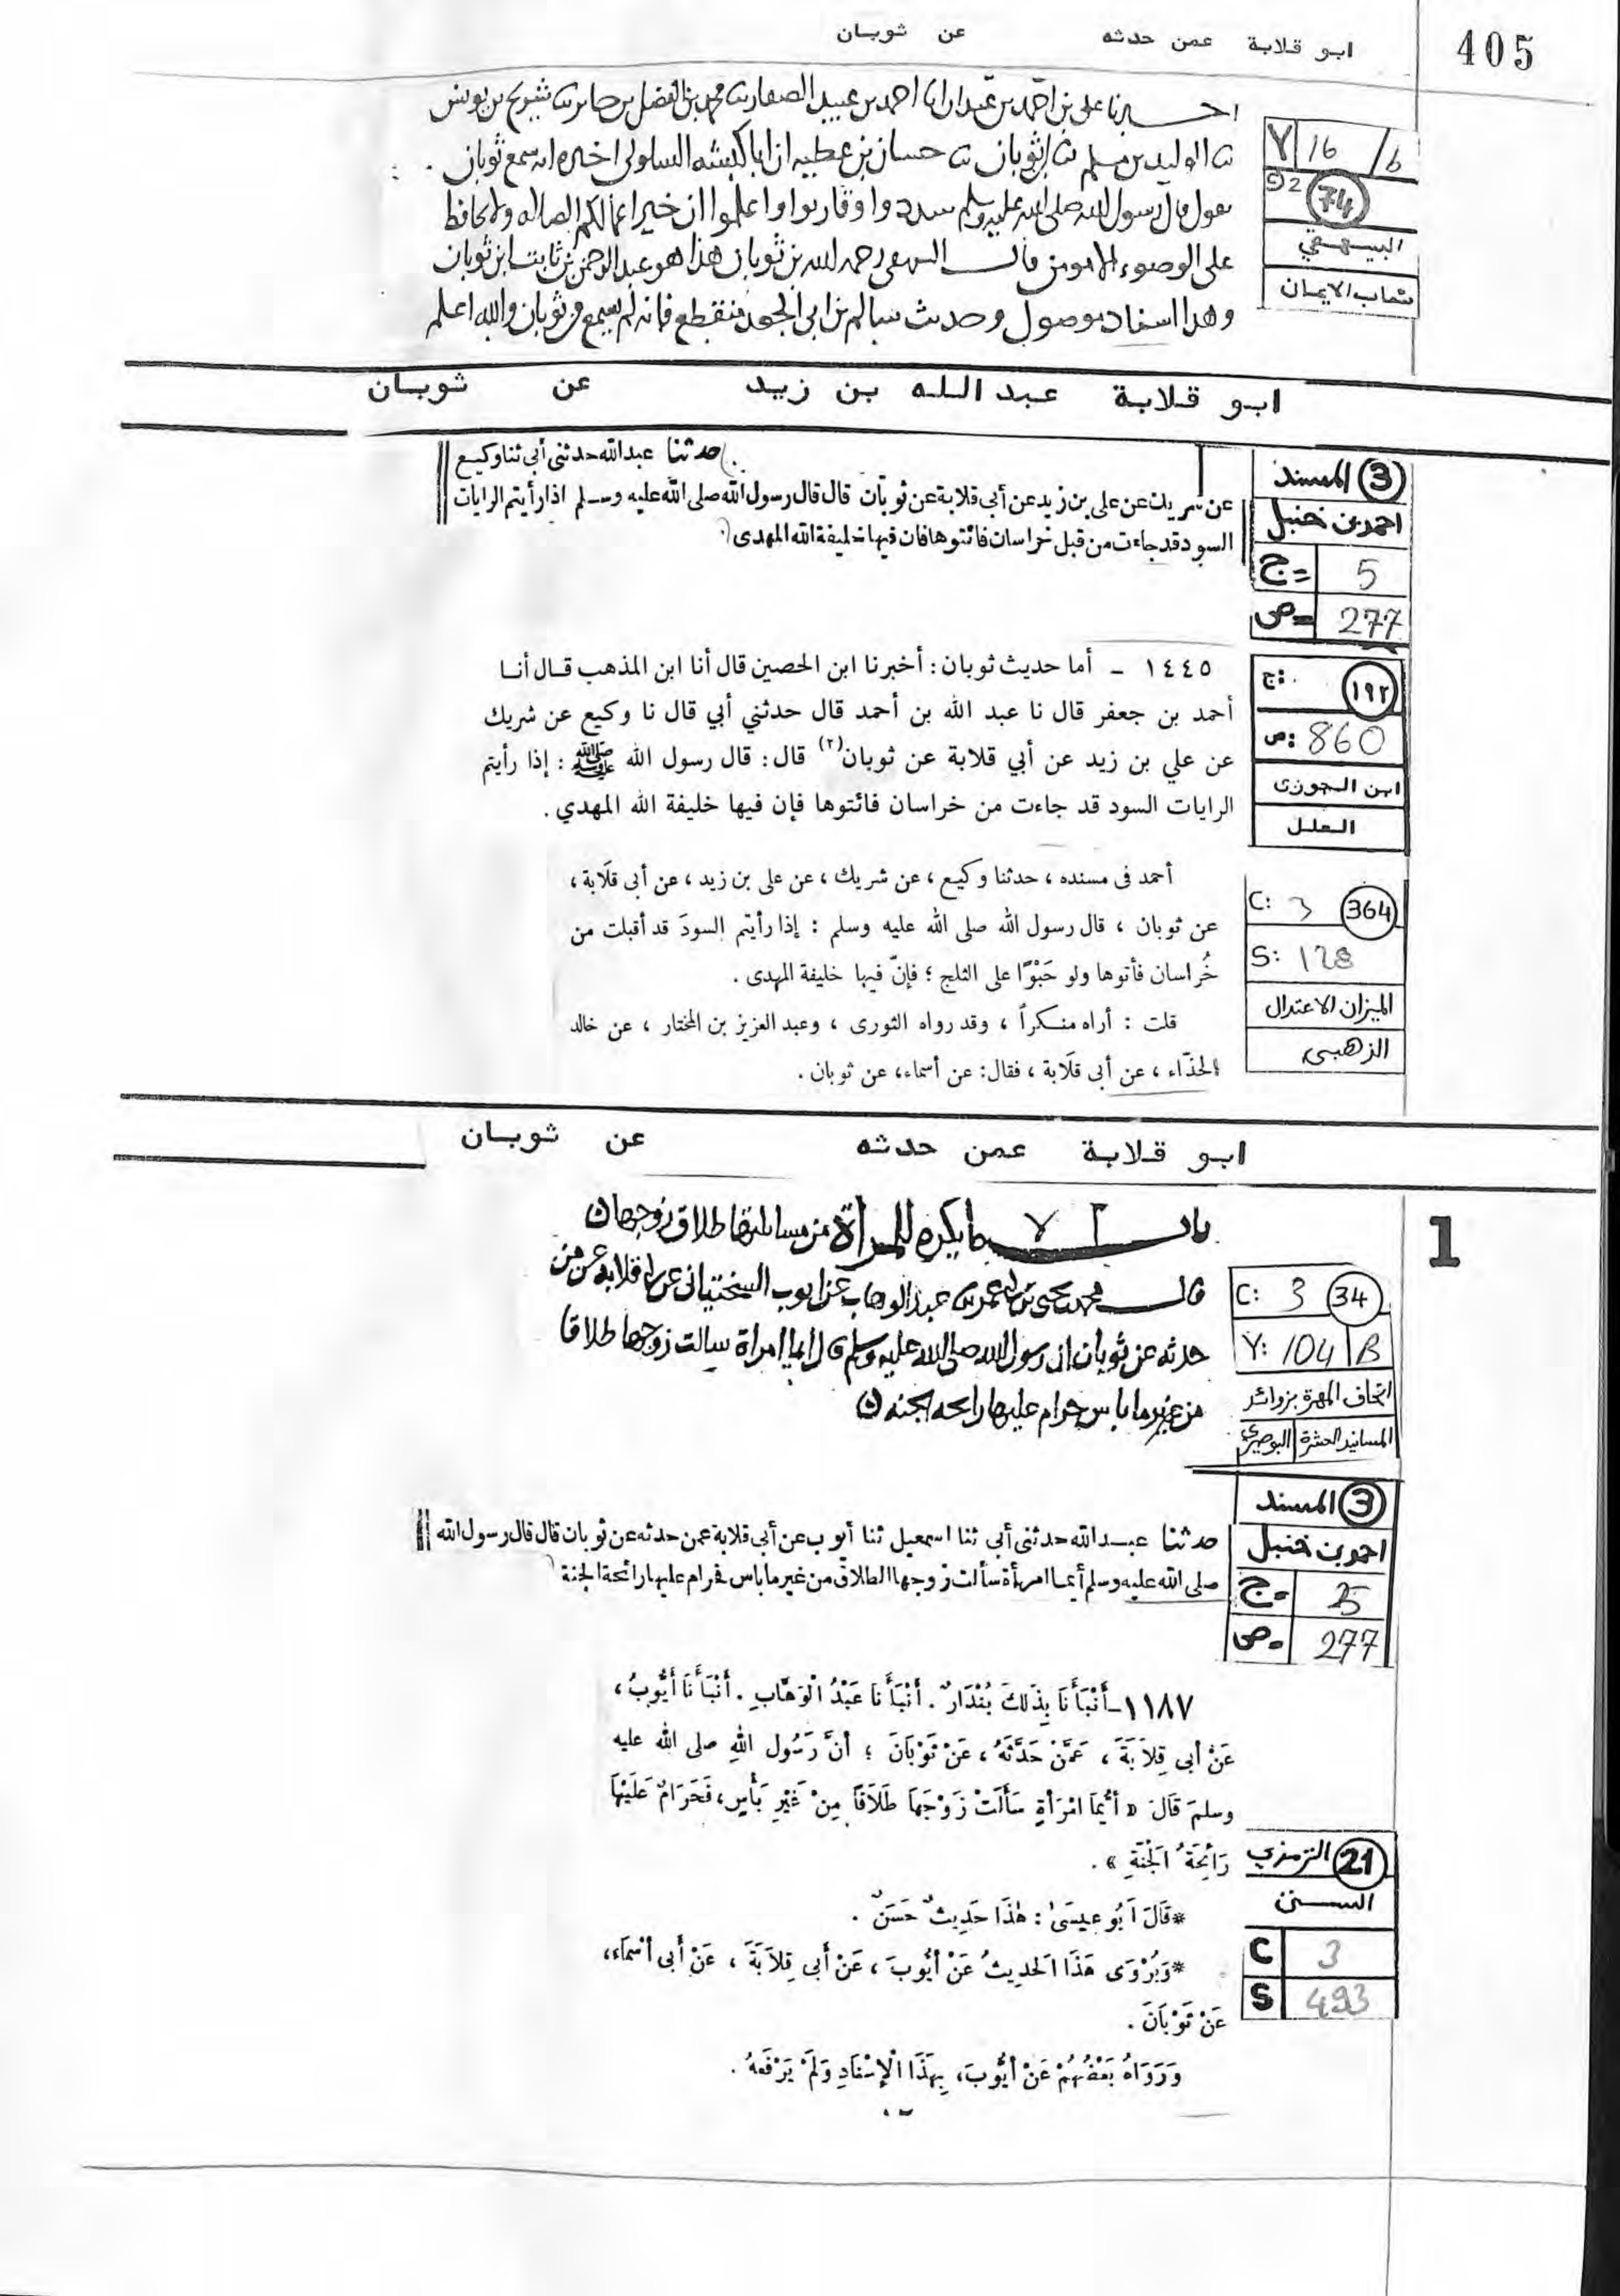 405
ابو قلابة عمن حدثه عن ثوبان
اخبرنا على بن احمد بن عبدان انا احمد بن عبيد الصفار ثنا محمد بن الفضل بن جابر ثنا شريح بن يونس
ثنا الوليد بن مسلم ثنا ابن ثوبان ثنا حسان بن عطيه ان ابا كبشه السلولى اخبره انه سمع ثوبان
يقول قال رسول الله صلى الله عليه وسلم سددوا وقاربوا واعلموا ان خير اعمالكم الصلاه ولا يحافظ
على الوضوء الا مومن قال البيهقى رحمه الله بن ثوبان هذا هو عبد الرحمن بن ثابت ابن ثوبان
وهذا اسناد موصول وحديث سالم بن ابى الجعد منقطع فانه لم يسمع من ثوبان والله اعلم
Y 16 / b
52 74
البيهقي
شعاب الايمان
ابو قلابة عبد الله بن زيد عن ثوبان
حدثنا عبد الله حدثنى أبى ثنا وكيع
عن شريك عن على بن زيد عن أبى قلابة عن ثوبان قال قال رسول الله صلى الله عليه وسلم اذا رأيتم الرايات
السود قد جاءت من قبل خراسان فائتوها فان فيها خليفة الله المهدى
3 المسند
احمد بن حنبل
ج= 5
ص= 277
١٤٤٥ - أما حديث ثوبان: أخبرنا ابن الحصين قال أنا ابن المذهب قال أنا
أحمد بن جعفر قال نا عبد الله بن أحمد قال حدثني أبي قال نا وكيع عن شريك
عن علي بن زيد عن أبي قلابة عن ثوبان(٢) قال: قال رسول الله ﷺ: إذا رأيتم
الرايات السود قد جاءت من خراسان فائتوها فإن فيها خليفة الله المهدي.
ج: ١٩٢
ص: 860
ابن الجوزى
العلل
أحمد فى مسنده، حدثنا وكيع، عن شريك، عن على بن زيد، عن أبى قلَابة،
عن ثوبان، قال رسول الله صلى الله عليه وسلم: إذا رأيتم السودَ قد أقبلت من
خُراسان فأتوها ولو حَبْوًا على الثلج؛ فإنّ فيها خليفة المهدى.
قلت: أراه منكراً، وقد رواه الثورى، وعبد العزيز بن المختار، عن خالد
الحذّاء، عن أبى قلَابة، فقال: عن أسماء، عن ثوبان.
C: 3 364
S: 128
الميزان الاعتدال
الزهبى
ابو قلابة عمن حدثه عن ثوبان
1
باب لا ما يكره للمرأة من مسايلتها طلاق زوجها
قال محمد بن يحيى بن ابى عمر ثنا عبد الوهاب عن ايوب السختيانى عن ابى قلابه عن من
حدثه عن ثوبان ان رسول الله صلى الله عليه وسلم قال ايما امراة سالت زوجها طلاقا
من غير ما باس حرام عليها رايحه الجنه
C: 3 34
Y: 104 B
اتحاف المهرة بزوائد
المسانيد العشرة البوصيري
3 المسند
احمد بن حنبل
ج= 25
ص= 277
حدثنا عبد الله حدثنى أبى ثنا اسمعيل ثنا أيوب عن أبى قلابة عمن حدثه عن ثوبان قال قال رسول الله
صلى الله عليه وسلم أيما امرأة سألت زوجها الطلاق من غير ما باس فحرام عليها رائحة الجنة
١١٨٧ - أَنْبَأَنَا بِذَلِكَ بُنْدَارٌ. أَنْبَأَنَا عَبْدُ الْوَهَّابِ. أَنْبَأَنَا أَيُّوبُ،
عَنْ أَبِى قِلَابَةَ، عَمَّنْ حَدَّثَهُ، عَنْ ثَوْبَانَ؛ أَنَّ رَسُولَ اللهِ صلى الله عليه
وسلم قَالَ « أَيُّمَا امْرَأَةٍ سَأَلَتْ زَوْجَهَا طَلَاقًا مِنْ غَيْرِ بَأْسٍ، فَحَرَامٌ عَلَيْهَا
رَائِحَةُ الْجَنَّةِ ».
*قَالَ أَبُو عِيسَى: هٰذَا حَدِيثٌ حَسَنٌ.
*وَيُرْوَى هَذَا الْحَدِيثُ عَنْ أَيُّوبَ، عَنْ أَبِى قِلَابَةَ، عَنْ أَبِى أَسْمَاءَ،
عَنْ ثَوْبَانَ.
وَرَوَاهُ بَعْضُهُمْ عَنْ أَيُّوبَ، بِهَذَا الْإِسْنَادِ وَلَمْ يَرْفَعْهُ.
21 الترمزي
السنن
C 3
S 493